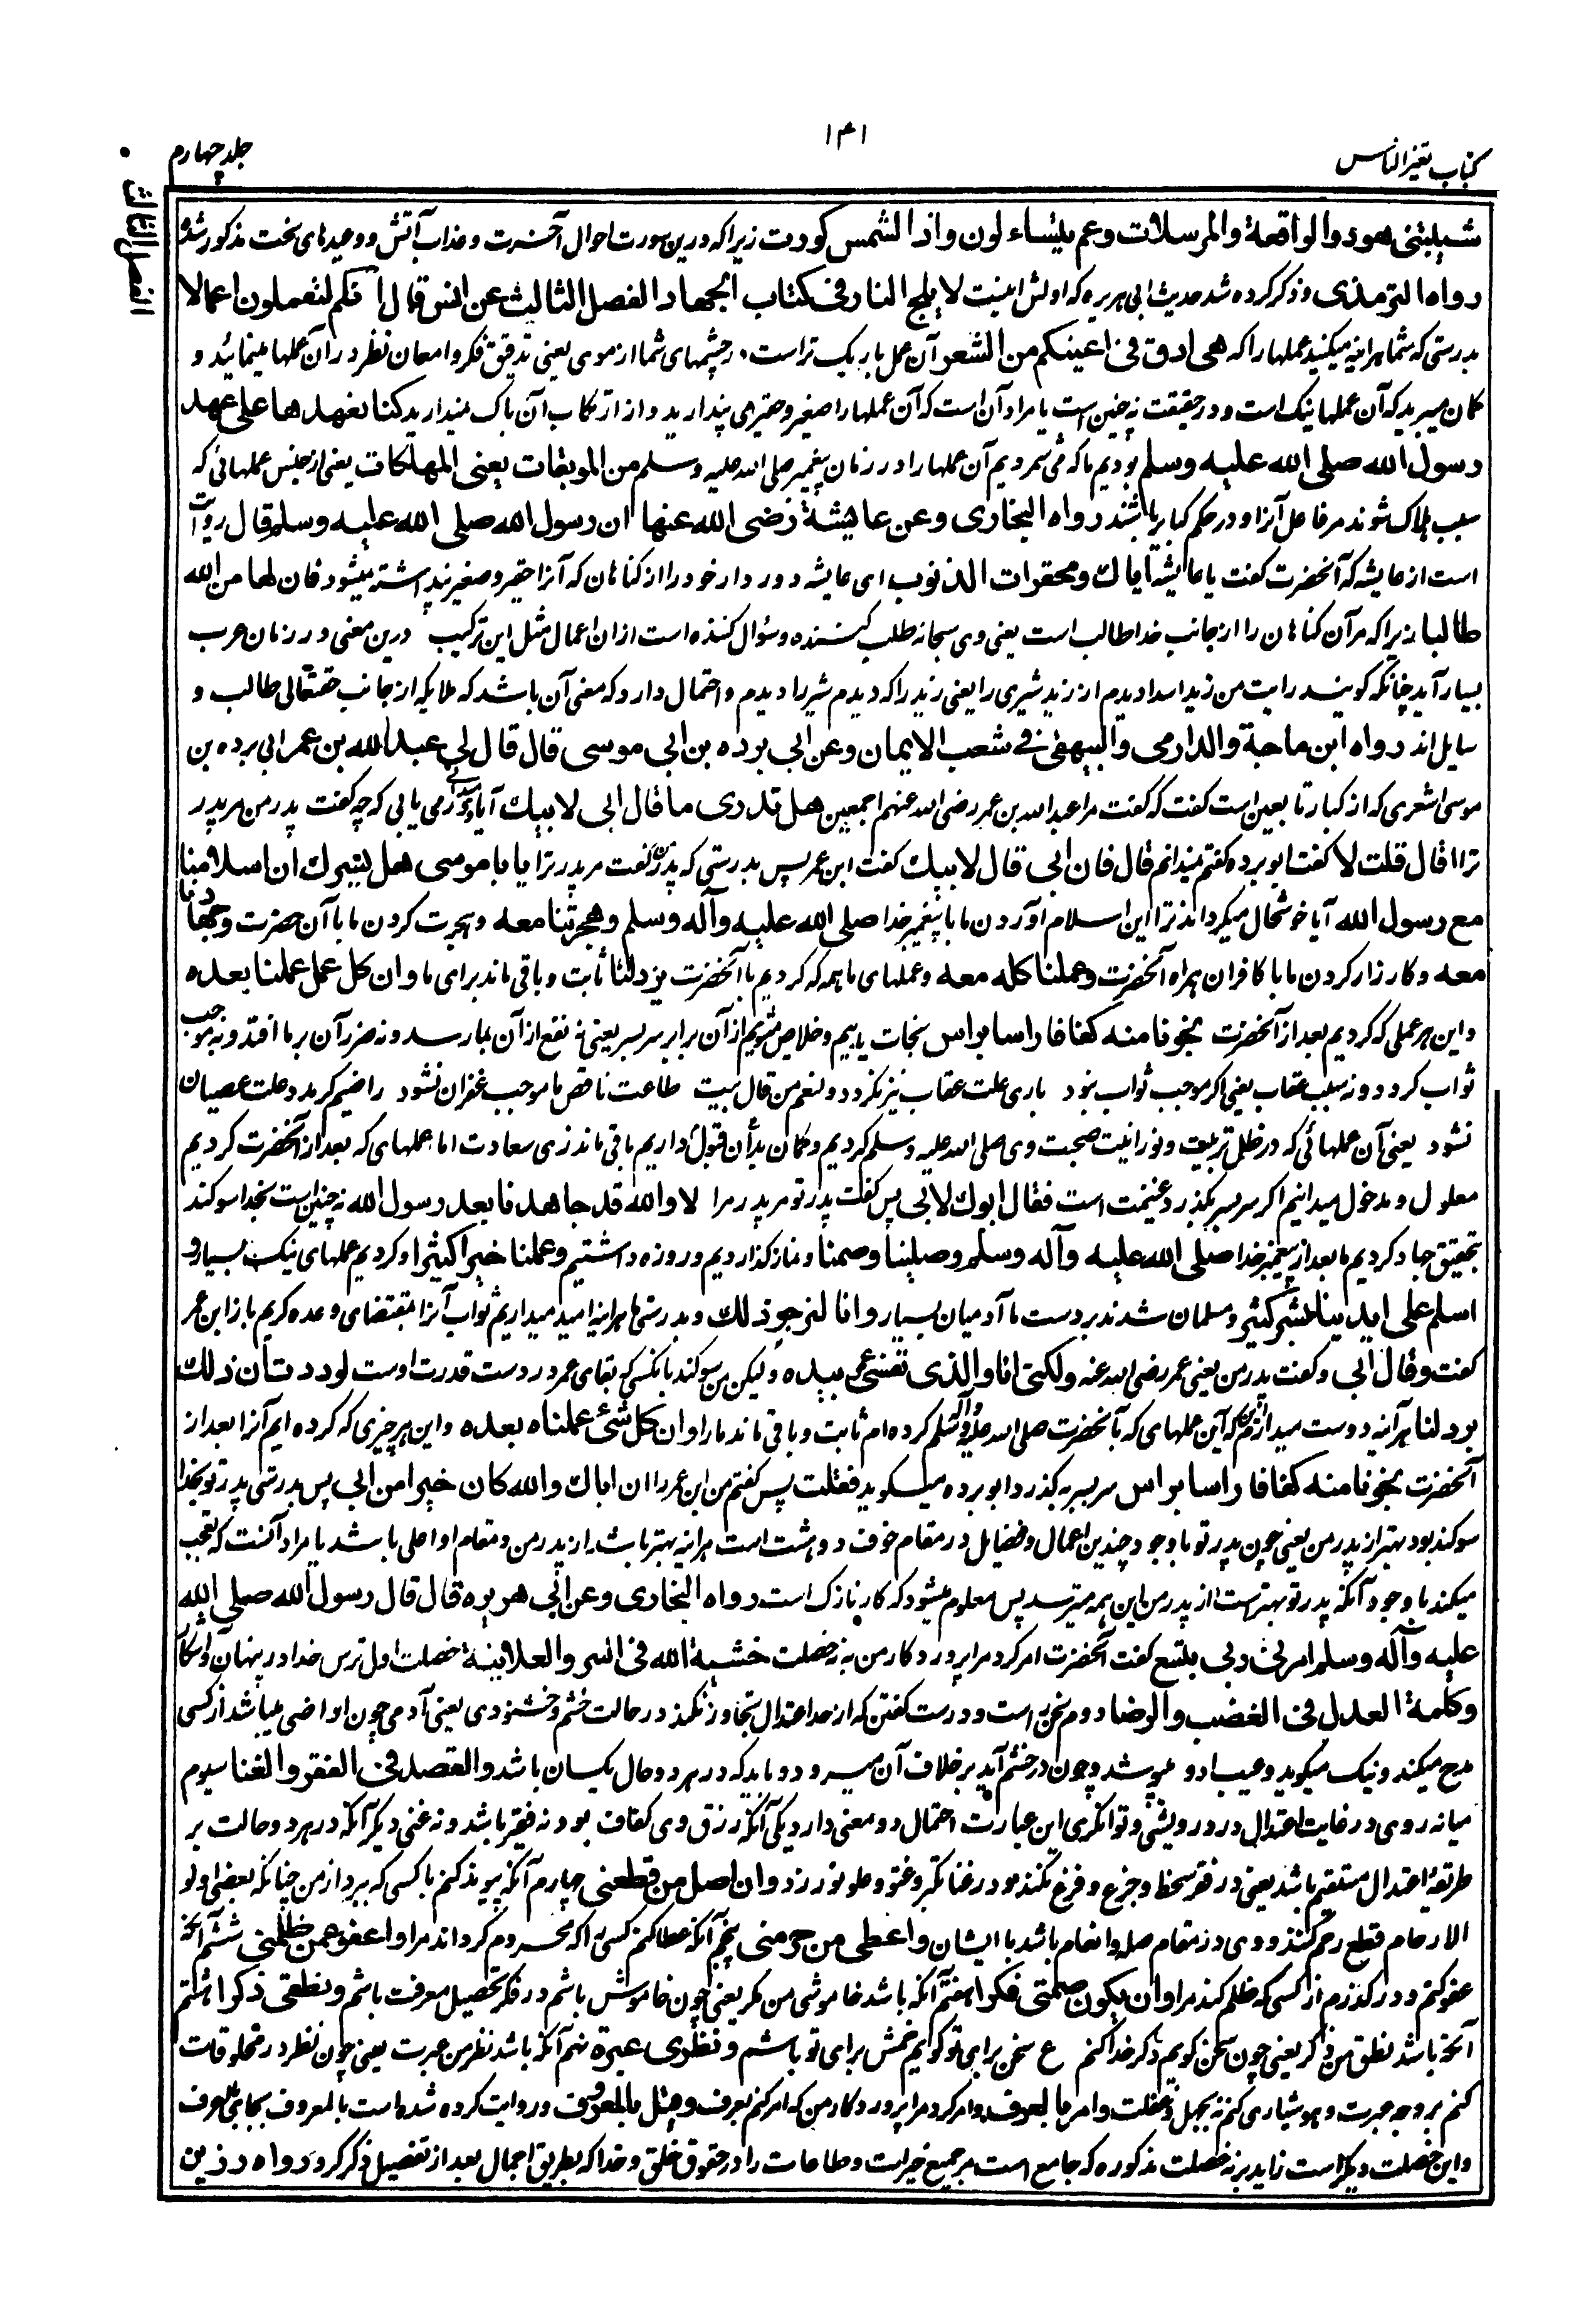 كتاب تغير الناس
۱۴۱
جلد چهارم
الفصل الثالث
شیبتنی هود والواقعة والمرسلات وعم یتساءلون واذا الشمس كورت زیرا که درین سورت احوال آخرت و عذاب آتش و وعیدهای سخت مذکور شد
رواه الترمذی و ذکر کرده شد حدیث ابی هریره که اولش اینست لا یلج النار فی کتاب الجهاد الفصل الثالث عن انس قال انکم لتعملون اعمالا
بدرستی که شما هر اینه میکنید عملها را که هی ادق فی اعینکم من الشعر آن عمل باریک تر است در چشمهای شما از موی یعنی تدقیق فکر و امعان نظر در آن عملها مینمائید و
کمان میبرید که آن عملها نیک است و در حقیقت نه چنین است یا مراد آن است که آن عملها را صغیر و حقیر می پندارید و از ارتکاب آن باک نمیدارید کنا نعدها علی عهد
رسول الله صلی الله علیه وسلم بودیم ما که می شمردیم آن عملها را در زمان پیغمبر صلی الله علیه و سلم من الموبقات یعنی المهلکات یعنی از جنس عملهائی که
سبب هلاک شوند مر فاعل آنرا و در حکم کبایر باشند رواه البخاری وعن عایشة رضی الله عنها ان رسول الله صلی الله علیه وسلم قال روایت
است از عایشه که آنحضرت گفت یا عایشة ایاک ومحقرات الذنوب ای عایشه دور دار خود را از کناهان که آنرا حقیر و صغیر پنداشته میشود فان لها من الله
طالبا زیرا که مر آن کناهان را از جانب خدا طالب است یعنی وی سبحانه طلب کننده و سؤال کننده است از ان اعمال مثل این ترکیب درین معنی در زبان عرب
بسیار آید چنانکه کویند رایت من زید اسدا دیدم از زید شیری را یعنی زید را که دیدم شیر را دیدم و احتمال دارد که معنی آن باشد که ملایکه از جانب حقتعالی طالب و
سایل اند رواه ابن ماجة والدارمی والبیهقی فی شعب الایمان وعن ابی برده بن ابی موسی قال قال لی عبد الله بن عمر ابی برده بن
موسی اشعری که از کبار تابعین است گفت که گفت مرا عبد الله بن عمر رضی الله عنهم اجمعین هل تدری ما قال ابی لابیک آیا در می یابی که چه گفت پدر من مر پدر
ترا قال قلت لا گفت ابو برده گفتم نمیدانم قال فان ابی قال لابیک گفت ابن عمر پس بدرستی که پدر من گفت مر پدر ترا یا ابا موسی هل یسرک ان اسلامنا
مع رسول الله آیا خوشحال میکرداند ترا این اسلام آوردن ما با پیغمبر خدا صلی الله علیه وآله وسلم وهجرتنا معه و هجرت کردن ما با آن حضرت وجهادنا
معه و کارزار کردن ما با کافران همراه آنحضرت وعملنا کله معه و عملهای ما همه که کردیم با آنحضرت برد لنا ثابت و باقی ماند برای ما وان کل عمل عملنا بعده
و این هر عملی که کردیم بعد از آنحضرت نجونا منه کفافا راسا براس نجات یابیم و خلاص شویم از آن برابر سر بسر یعنی نه نفع از آن بما رسد و نه ضرر آن بر ما افتد و نه موجب
ثواب کردد و نه سبب عقاب یعنی اکر موجب ثواب نبود باری علت عقاب نیز نکردد و لنعم من قال بیت طاعت ناقص ما موجب غفران نشود راضیم کر مدد علت عصیان
نشود یعنی آن عملهائی که در ظل تربیت و نورانیت صحبت وی صلی الله علیه و سلم کردیم و کمان بدان قبول داریم باقی ماند زی سعادت اما عملهای که بعد از آنحضرت کردیم
معلول و مدخول میدانیم اکر سر بسر بکذرد غنیمت است فقال ابوک لابی پس گفت پدر تو مر پدر مرا لا والله قد جاهدنا بعد رسول الله نه چنین است بخدا سوکند
بتحقیق جهاد کردیم ما بعد از پیغمبر خدا صلی الله علیه وآله وسلم وصلینا وصمنا و نماز کذاردیم و روزه داشتیم وعملنا خیرا کثیرا و کردیم عملهای نیک بسیار و
اسلم علی ایدینا بشر کثیر و مسلمان شدند بر دست ما آدمیان بسیار وانا لنرجو ذلک و بدرستی ما هر اینه امید میداریم ثواب آنرا بمقتضای وعده کریم باز ابن عمر
گفت وقال ابی و گفت پدر من یعنی عمر رضی الله عنه ولکنی انا والذی نفس عمر بیده و لیکن من سوکند بانکسی که بقای عمر در دست قدرت اوست لوددت ان ذلک
برد لنا هر آینه دوست میدارم که این عملهای که با آنحضرت صلی الله علیه وآله وسلم کرده ام ثابت و باقی ماند ما را وان کل شئ عملناه بعده و این هر چیزی که کرده ایم آنرا بعد از
آنحضرت نجونا منه کفافا راسا براس سر بسر بکذرد ابو برده میکوید فقلت پس گفتم من ابن عمر را ان اباک والله کان خیرا من ابی پس بدرستی پدر تو بخدا
سوکند بود بهتر از پدر من یعنی چون پدر تو با وجود چندین اعمال و فضایل در مقام خوف و دهشت است هر اینه بهتر باشد از پدر من و مقام او اعلی باشد یا مراد آنست که تعجب
میکند با وجود آنکه پدر تو بهتر است از پدر من این همه میترسد پس معلوم میشود که کار نازک است رواه البخاری وعن ابی هریره قال قال رسول الله صلی الله
علیه وآله وسلم امرنی ربی بتسع گفت آنحضرت امر کرد مرا پروردکار من به نه خصلت خشیة الله فی السر والعلانیة خصلت اول ترس خدا در پنهان و آشکارا
وکلمة العدل فی الغضب والرضا دوم سخن راست و درست گفتن که از حد اعتدال تجاوز نکند در حالت خشم و خشنودی یعنی آدمی چون راضی میباشد از کسی
مدح میکند و نیک میکوید و عیب او می پوشد و چون در خشم آید بر خلاف آن میرود و باید که در هر دو حال یکسان باشد والقصد فی الفقر والغنا سیوم
میانه روی و رعایت اعتدال در درویشی و توانکری این عبارت احتمال دو معنی دارد یکی آنکه رزق وی کفاف بود نه فقیر باشد و نه غنی دیکر آنکه در هر دو حالت بر
طریقهٔ اعتدال مستقیم باشد یعنی در فقر سخط و جزع و فزع نکند و در غنا تکبر و عتو و علو نورزد وان اصل من قطعنی چهارم آنکه پیوند کنم با کسی که ببرد از من چنانکه بعضی اولو
الارحام قطع رحم کنند و وی در مقام صله و انعام باشد با ایشان واعطی من حرمنی پنجم آنکه عطا کنم کسی را که محروم کرداند مرا واعفو عمن ظلمنی ششم آنکه
عفو کنم و درکذرم از کسی که ظلم کند مرا وان یکون صمتی فکرا هفتم آنکه باشد خاموشی من فکر یعنی چون خاموش باشم در فکر تحصیل معرفت باشم ونطقی ذکرا هشتم
آنکه باشد نطق من ذکر یعنی چون سخن کویم ذکر خدا کنم ع سخن برای تو کویم خمش برای تو باشم ونظری عبرة نهم آنکه باشد نظر من عبرت یعنی چون نظر در مخلوقات
کنم بر وجه عبرت و هوشیاری کنم نه بجهل و غفلت وامر بالعرف و امر کرد مرا پروردکار من که امر کنم بعرف وقیل بالمعروف و روایت کرده شده است بالمعروف بجای بالعرف
و این خصلت دیکر است زاید بر نه خصلت مذکوره که جامع است مر جمیع خیرات و طاعات را در حقوق خلق و خدا که بطریق اجمال بعد از تفصیل ذکر کرد رواه رزین